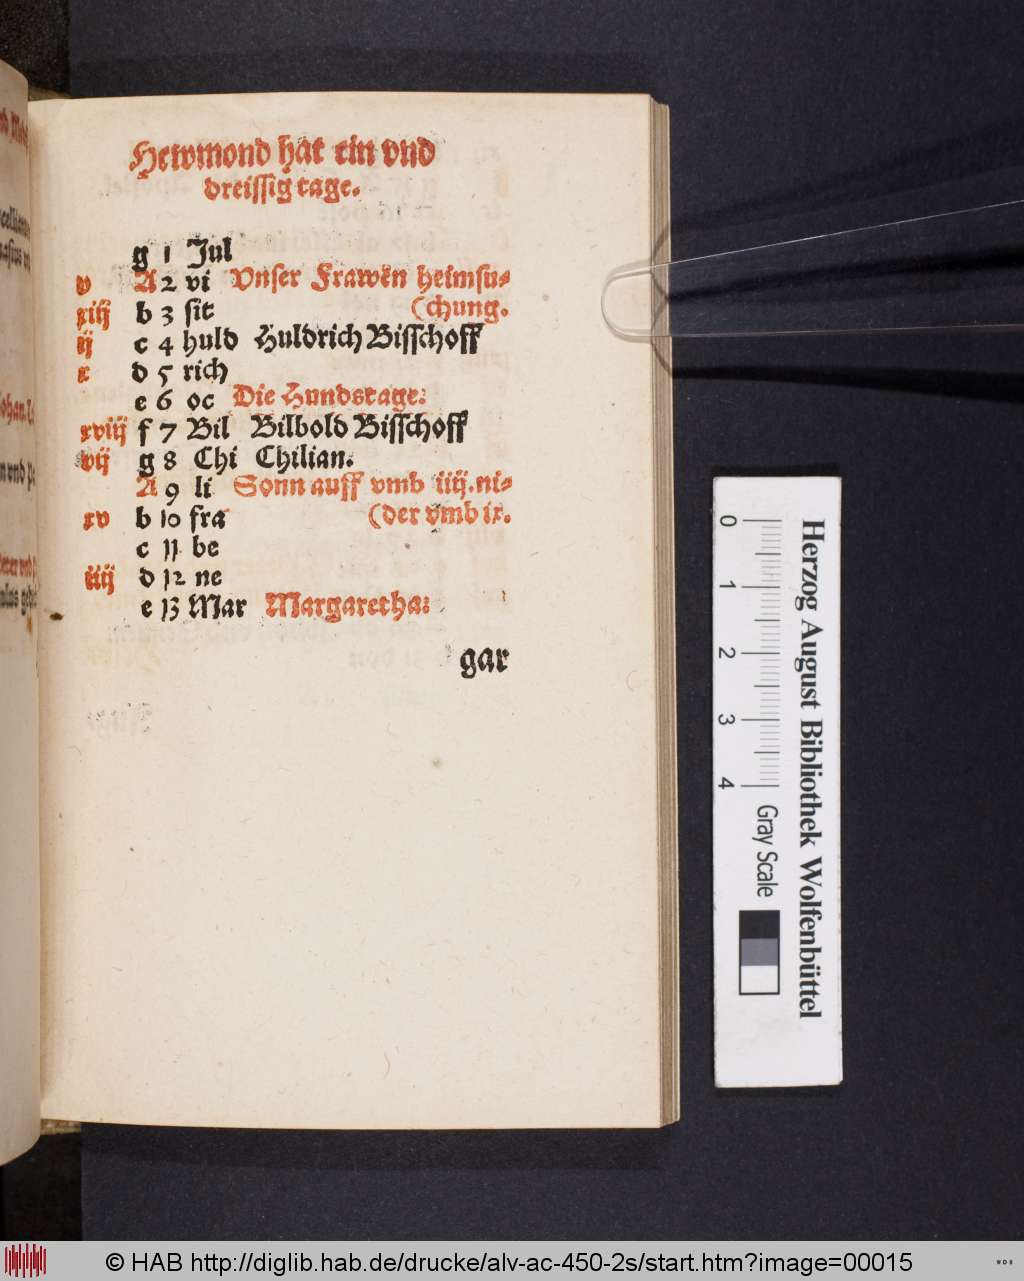 Hewmond hat ein vnd
dreissig tage.
g 1 Jul
v A 2 vi Vnser Frawen heimsu-
xiij b 3 sit (chung.
ij c 4 huld Huldrich Bisschoff
x d 5 rich
e 6 oc Die Hundstage:
xviij f 7 Bil Bilbold Bisschoff
vij g 8 Chi Chilian.
A 9 li Sonn auff vmb iiij. ni-
xv b 10 fra (der vmb ix.
c 11 be
iiij d 12 ne
e 13 Mar Margaretha:
gar
Herzog August Bibliothek Wolfenbüttel
0 1 2 3 4 Gray Scale
© HAB http://diglib.hab.de/drucke/alv-ac-450-2s/start.htm?image=00015